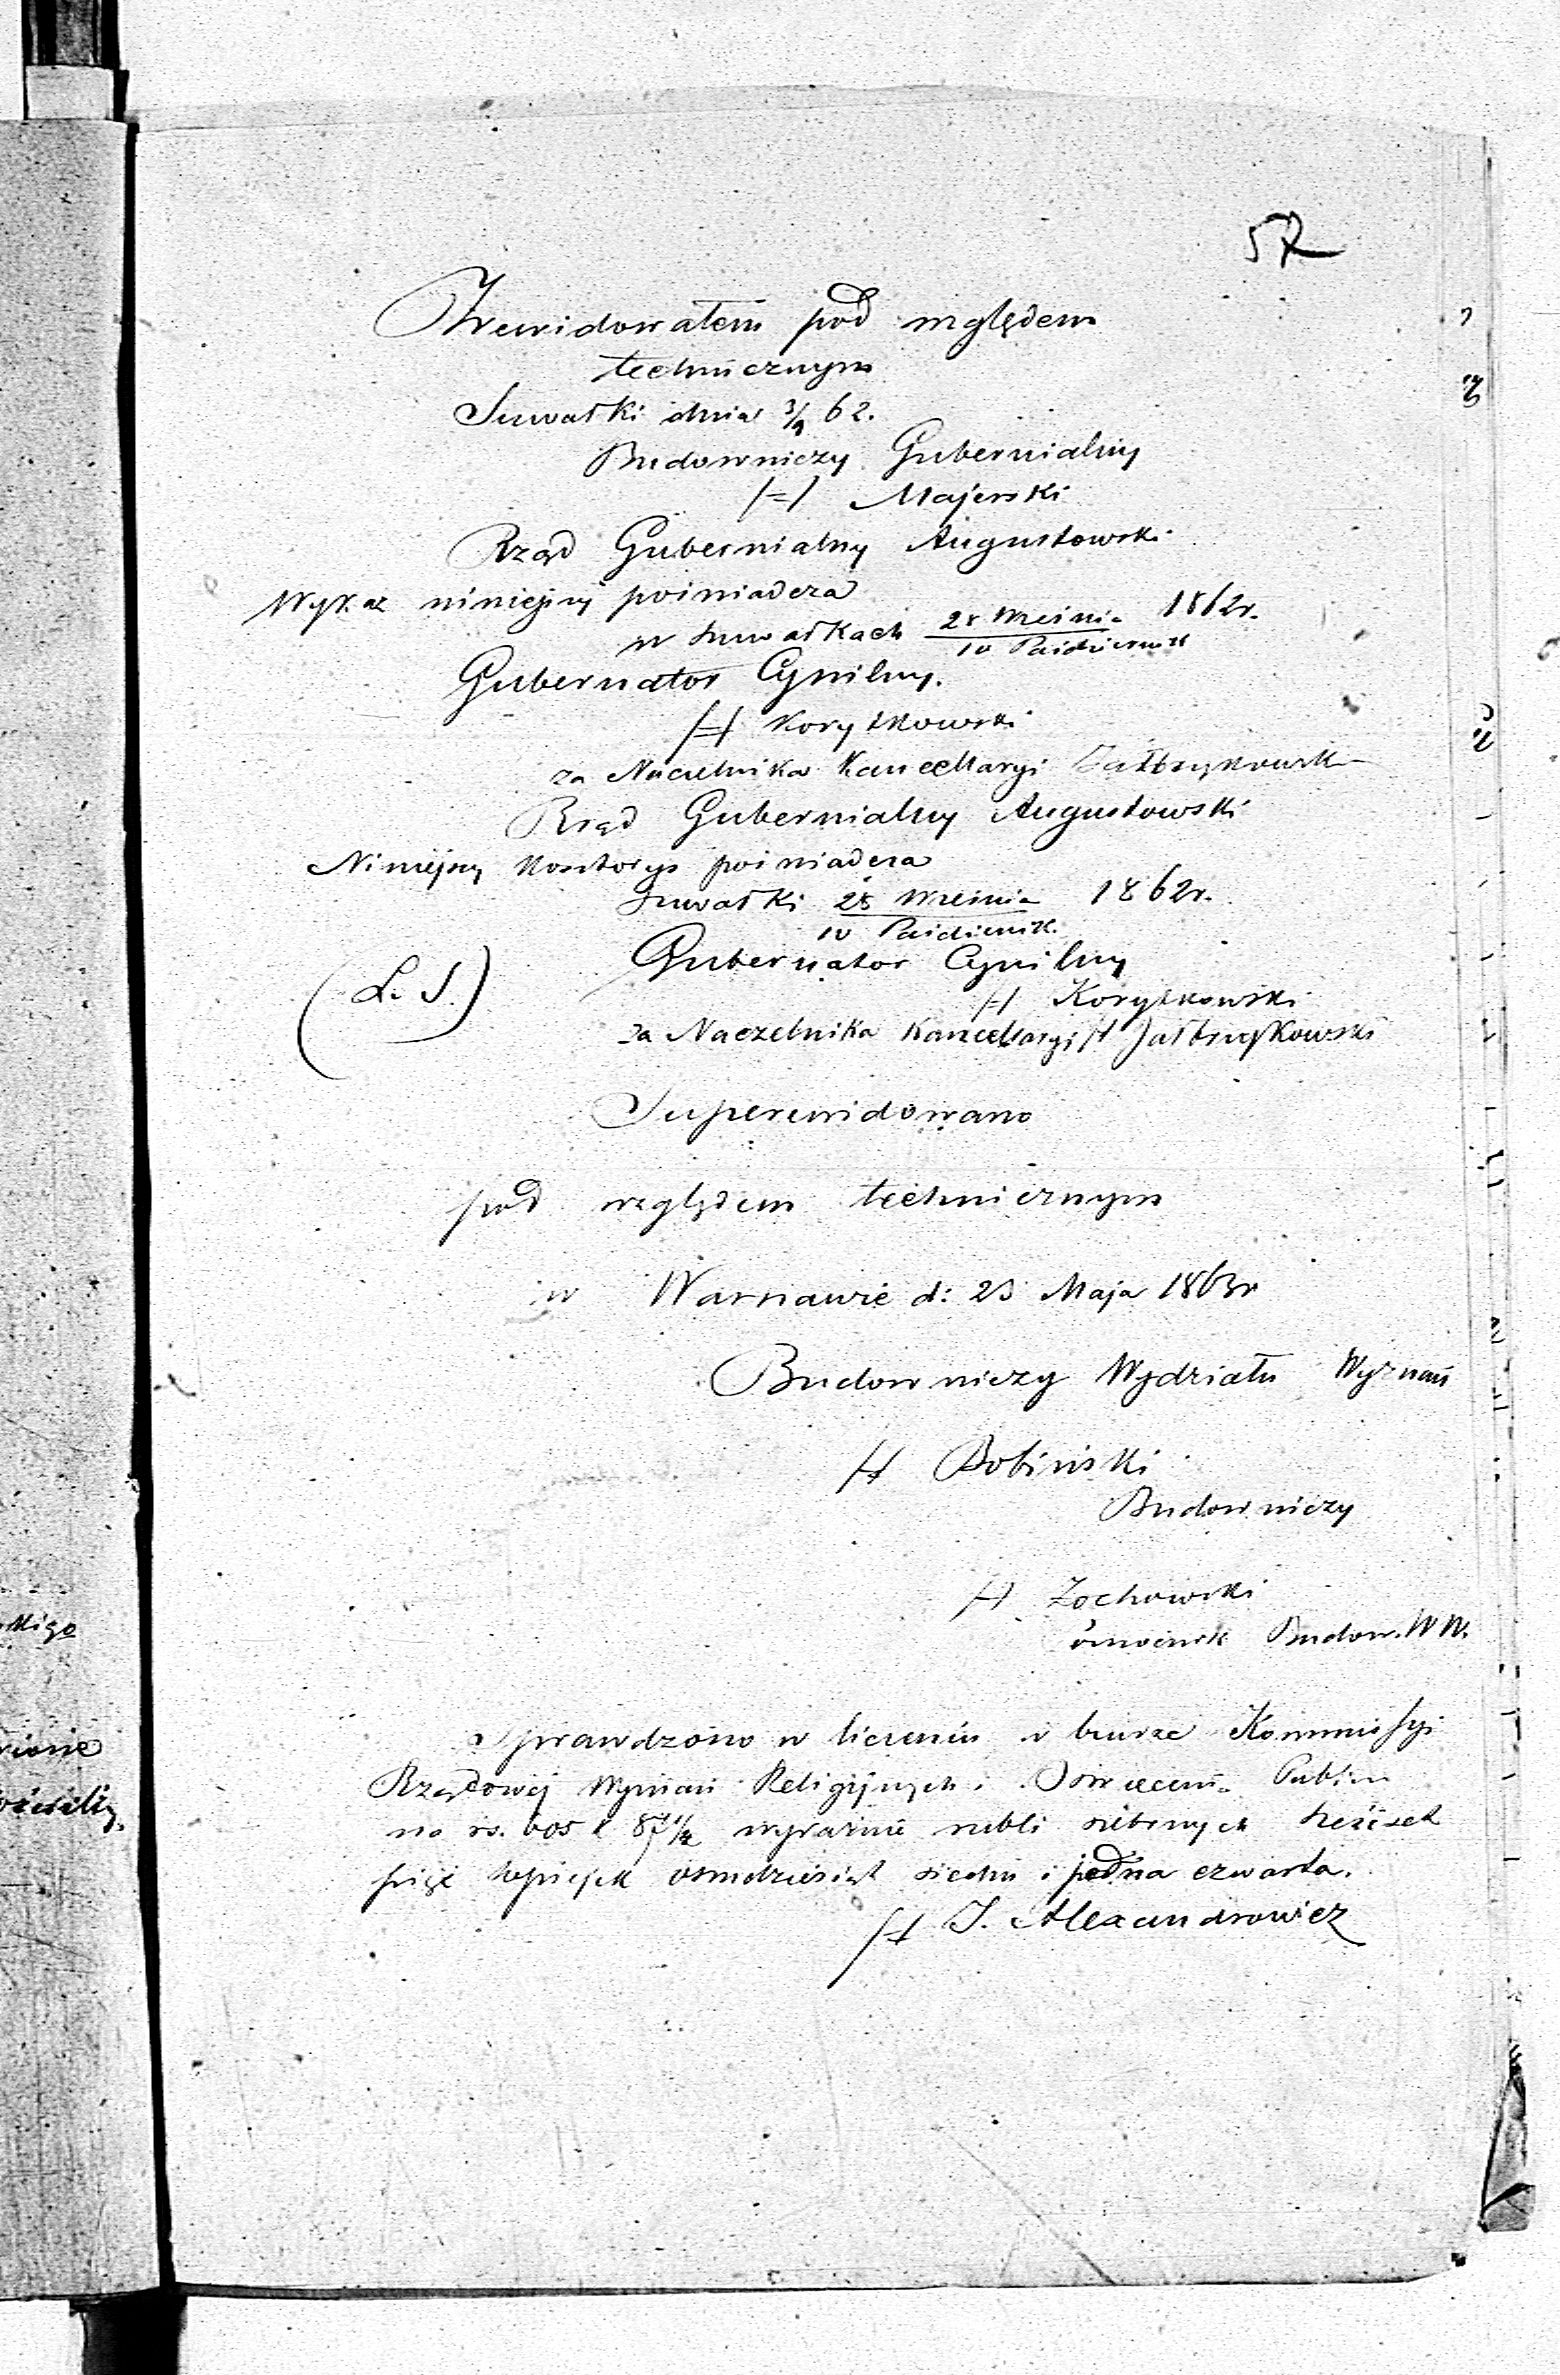 57
Zrewidowałem pod względem
technicznym
Suwałki dnia 3/9 62.
Budowniczy Gubernialny
/=/ Majerski
Rząd Gubernialny Augustowski
Wykaz niniejszy poświadcza
w Suwałkach 28 Września / 10 Październik 1862r.
Gubernator Cywilny.
/=/ Korytkowski
za Naczelnika Kancellaryi Jałbrzykowski
Rząd Gubernialny Augustowski
Niniejszy kosztorys poświadcza
Suwałki 28 Września / 10 Październik. 1862r.
(L. S.)
Gubernator Cywilny
/=/ Korytkowski
za Naczelnika Kancellaryi /=/ Jałbrzykowski
Superewidowano
pod względem technicznym
w Warszawie d: 23 Maja 1863r
Budowniczy Wydziału Wyznań
/=/ Bobiński
Budowniczy
/=/ Żochowski
Budow. W W.
Sprawdzono w liczeniu w biurze Kommissyi
Rządowej Wyznań Religijnych i Oświecenia Publicz
na rs. 605 k 87 1/4 wyraźnie rubli srebrnych sześćset
pięć kopiejek ośmdziesiąt siedm i jedna czwarta.
/=/ J. Alexandrowicz